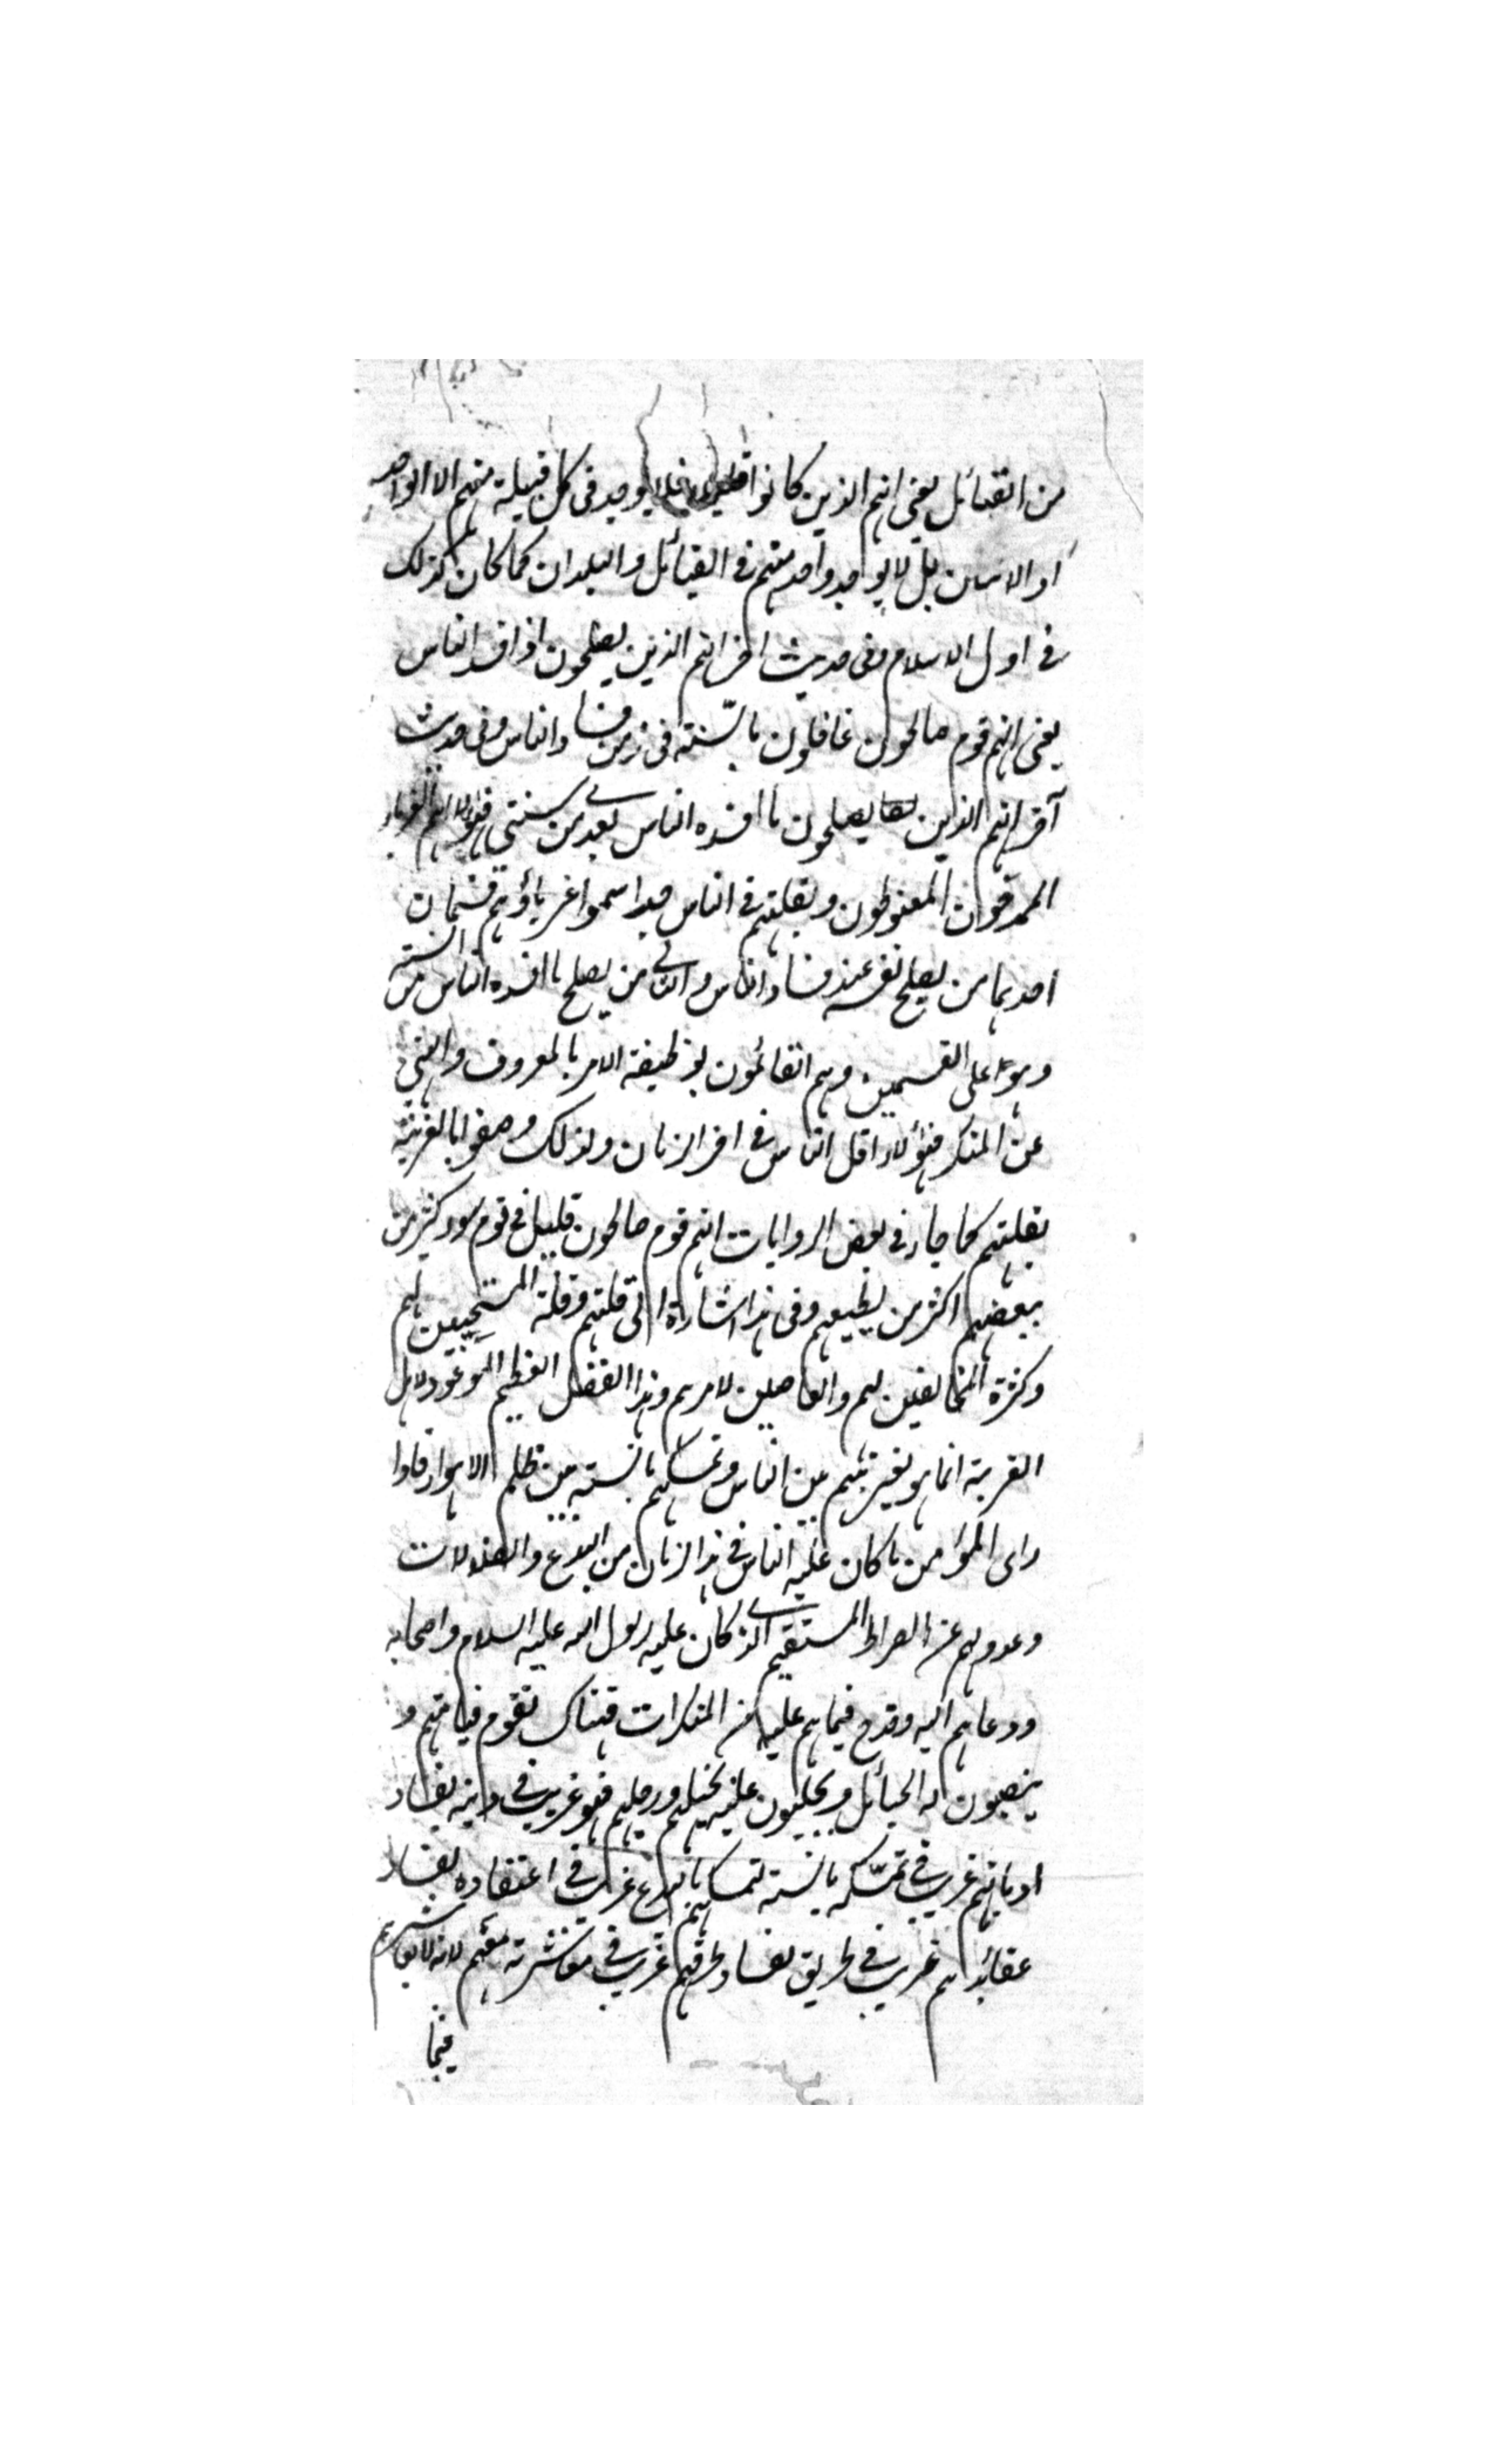 من القبائل يعني انهم الذين كانوا قليلين فلا يوجد في كل قبيلة منهم الا الواحد
او الاثنان بل لا يوجد واحد منهم في القبائل والبلدان كما كان كذلك
في اول الاسلام وفي حديث اخر انهم الذين يصلحون اذا فسد الناس
يعني انهم قوم صالحون عاملون بالسنة في زمن فساد الناس وفي حديث
آخر انهم الذين يصلحون ما افسده الناس بعدي من سنتي فهؤلاء هم الغرباء
الممدوحون المغبوطون ولقلتهم في الناس جدا سموا غرباء وهم قسمان
احدهما من يصلح نفسه عند فساد الناس والثاني من يصلح ما افسده الناس من السنة
وهو اعلى القسمين وهم القائمون بوظيفة الامر بالمعروف والنهي
عن المنكر فهؤلاء اقل الناس في اخر الزمان ولذلك وصفوا بالغربة
لقلتهم كما جاء في بعض الروايات انهم قوم صالحون قليل في قوم سوء كثير من
يعصيهم اكثر ممن يطيعهم وفي هذا اشارة الى قلتهم وقلة المستجيبين لهم
وكثرة المخالفين لهم والعاصين لامرهم وهذا الفضل العظيم الموعود لاهل
الغربة انما هو لغربتهم بين الناس وتمسكهم بالسنة بين ظلم الاهواء فاذا
راى المؤمن ما كان عليه الناس في هذا الزمان من البدع والضلالات
وعدولهم عن الصراط المستقيم الذي كان عليه رسول الله عليه السلام واصحابه
ودعاهم اليه وقدح فيما هم عليه من المنكرات فهناك تقوم قيامتهم و
ينصبون له الحبائل ويجلبون عليه بخيلهم ورجلهم فهو غريب في دينه لفساد
اديانهم غريب في تمسكه بالسنة لتمسكهم بالبدع غريب في اعتقاده لفساد
عقائدهم غريب في طريقه لفساد طرقهم غريب في معاشرته معهم لانه لا يعاشرهم
فيما